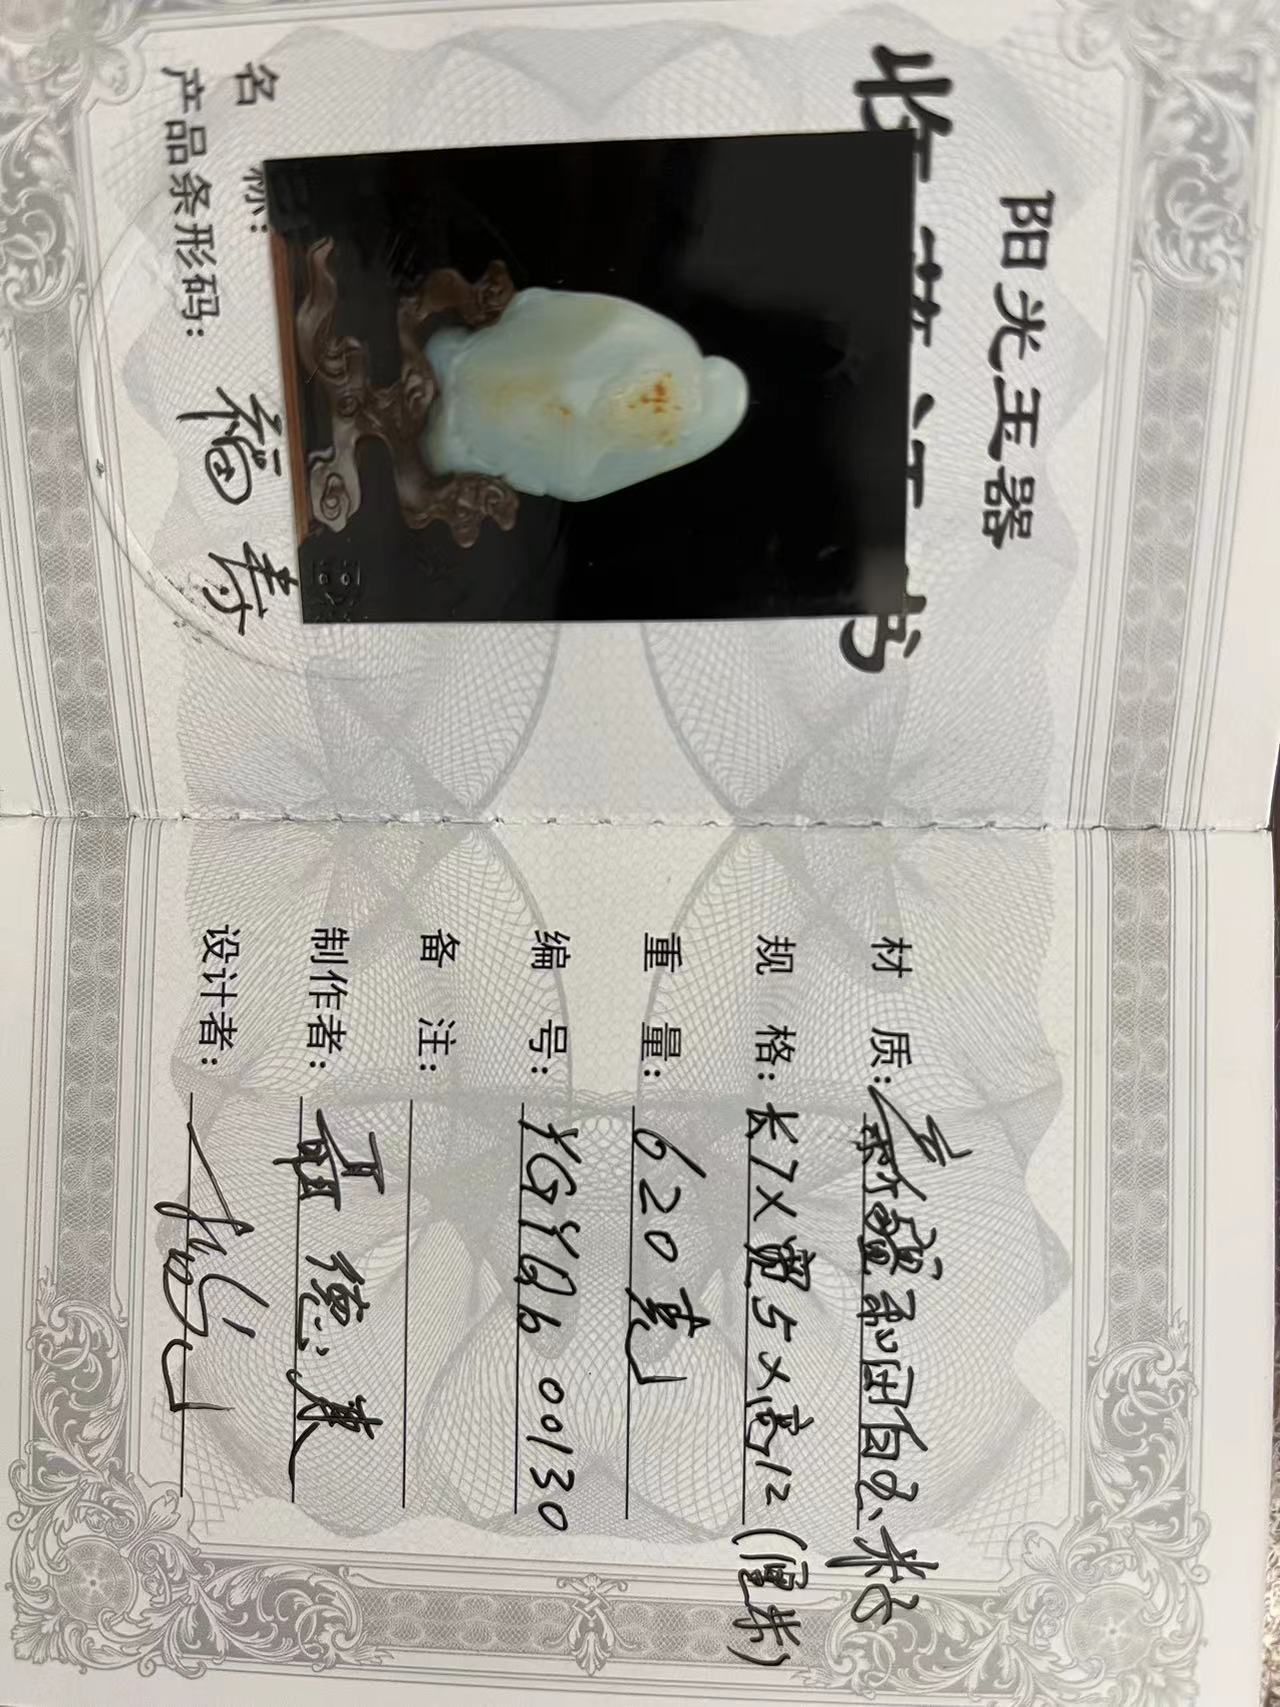 阳光玉器
收藏证书
名 称：福寿
产品条形码：
材 质：新疆和田白玉籽
规 格：长7×宽5×高12（厘米）
重 量：620克
编 号：YGYQb 00130
备 注：
制作者：聂德
设计者：